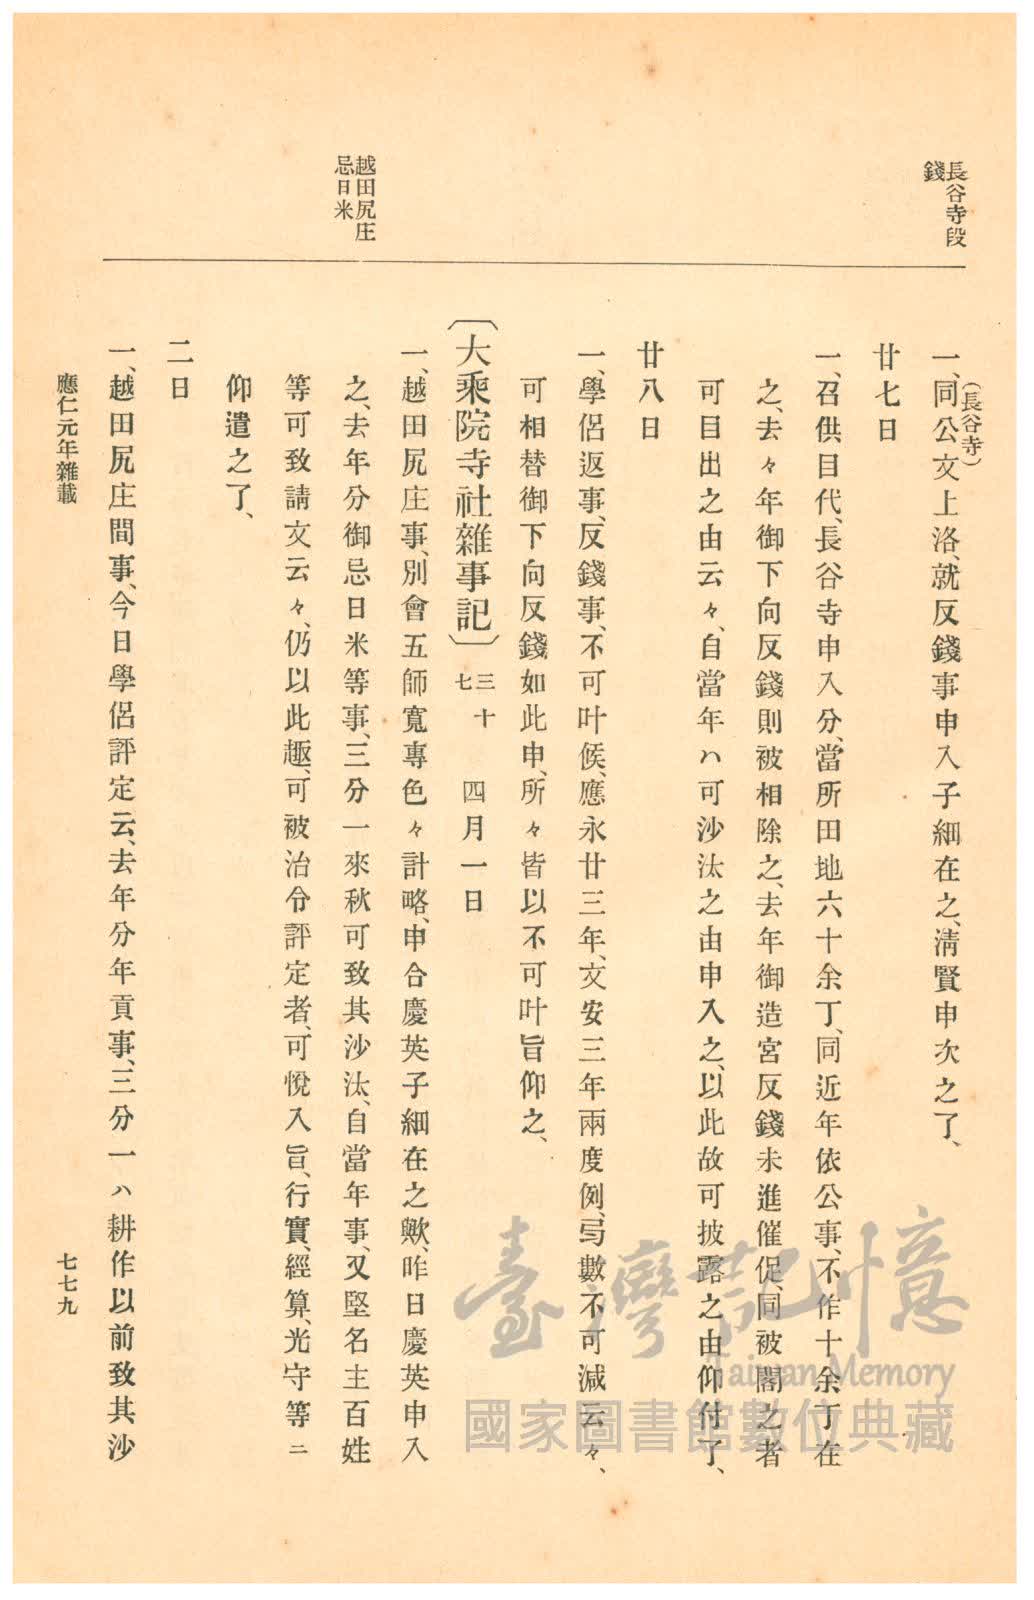 長谷寺段
錢
越田尻庄
忌日米
(長谷寺)
一、同公文上洛、就反錢事申入子細在之、淸賢申次之了、
廿七日
一、召供目代、長谷寺申入分、當所田地六十余丁、同近年依公事、不作十余丁在
之、去々年御下向反錢則被相除之、去年御造宮反錢未進催促、同被閣之者
可目出之由云々、自當年ハ可沙汰之由申入之、以此故可披露之由仰付了、
廿八日
一、學侶返事、反錢事、不可叶候、應永廿三年、文安三年兩度例、弖數不可減云々、
可相替御下向反錢如此申、所々皆以不可叶旨仰之、
〔大乘院寺社雜事記〕 三十七 四月一日
一、越田尻庄事、別會五師寬專色々計略、申合慶英子細在之歟、昨日慶英申入
之、去年分御忌日米等事、三分一來秋可致其沙汰、自當年事、又堅名主百姓
等可致請文云々、仍以此趣、可被治令評定者、可悅入旨、行實、經算、光守等ニ
仰遣之了、
二日
一、越田尻庄間事、今日學侶評定云、去年分年貢事、三分一ハ耕作以前致其沙
應仁元年雜載
七七九
臺灣記憶
Taiwan Memory
國家圖書館數位典藏